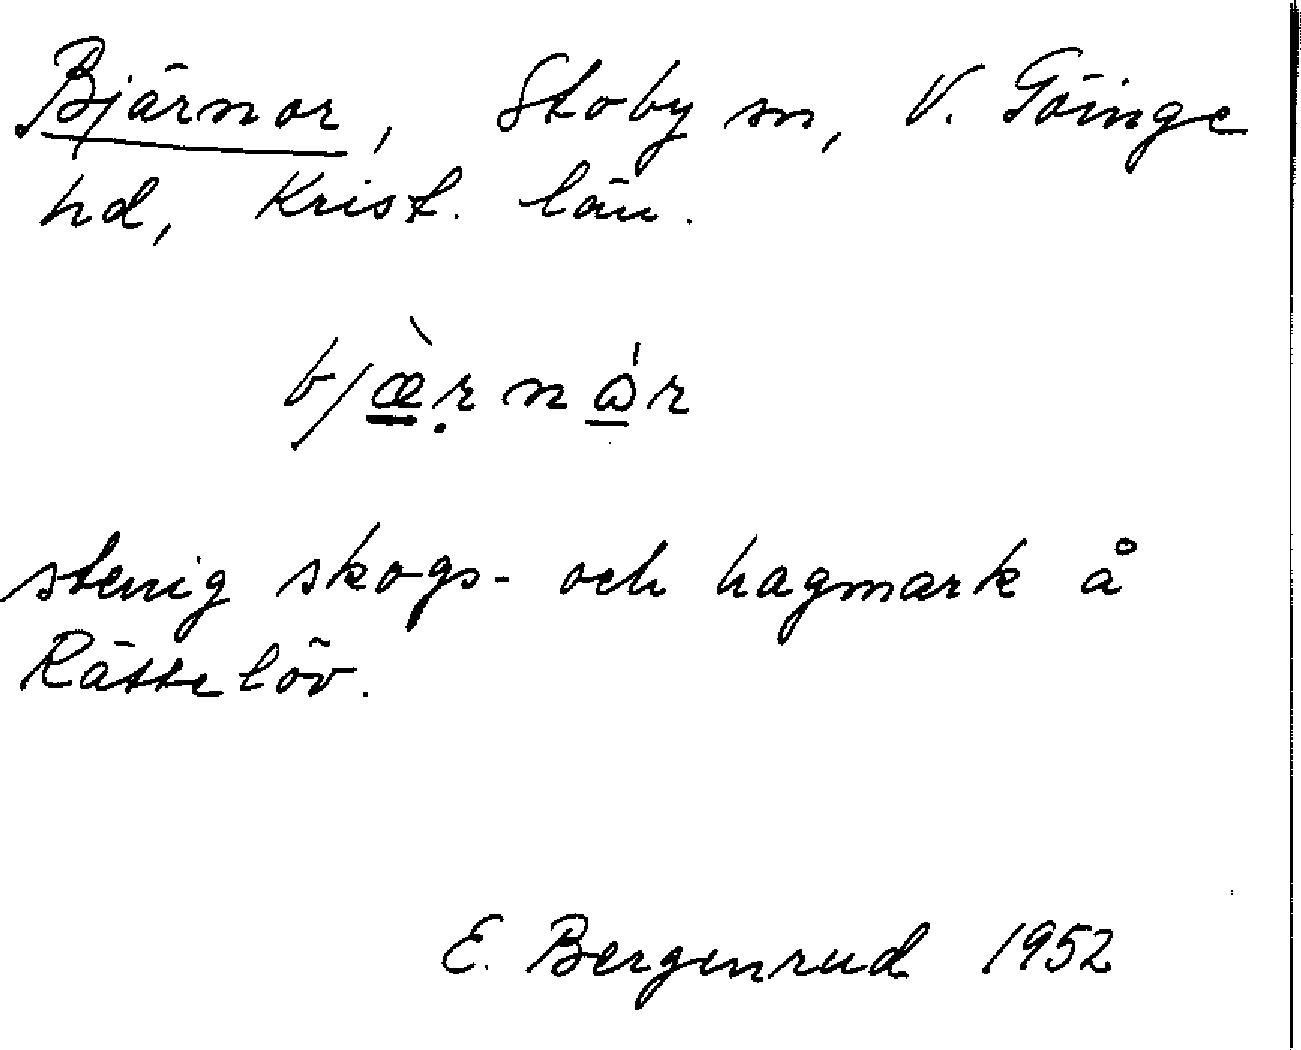 Bjärnor, Stoby sn, V. Göinge
hd, Krist. län.
bjæ̀rnår
stenig skogs- och hagmark å
Rättelöv.
E. Bergenrud 1952